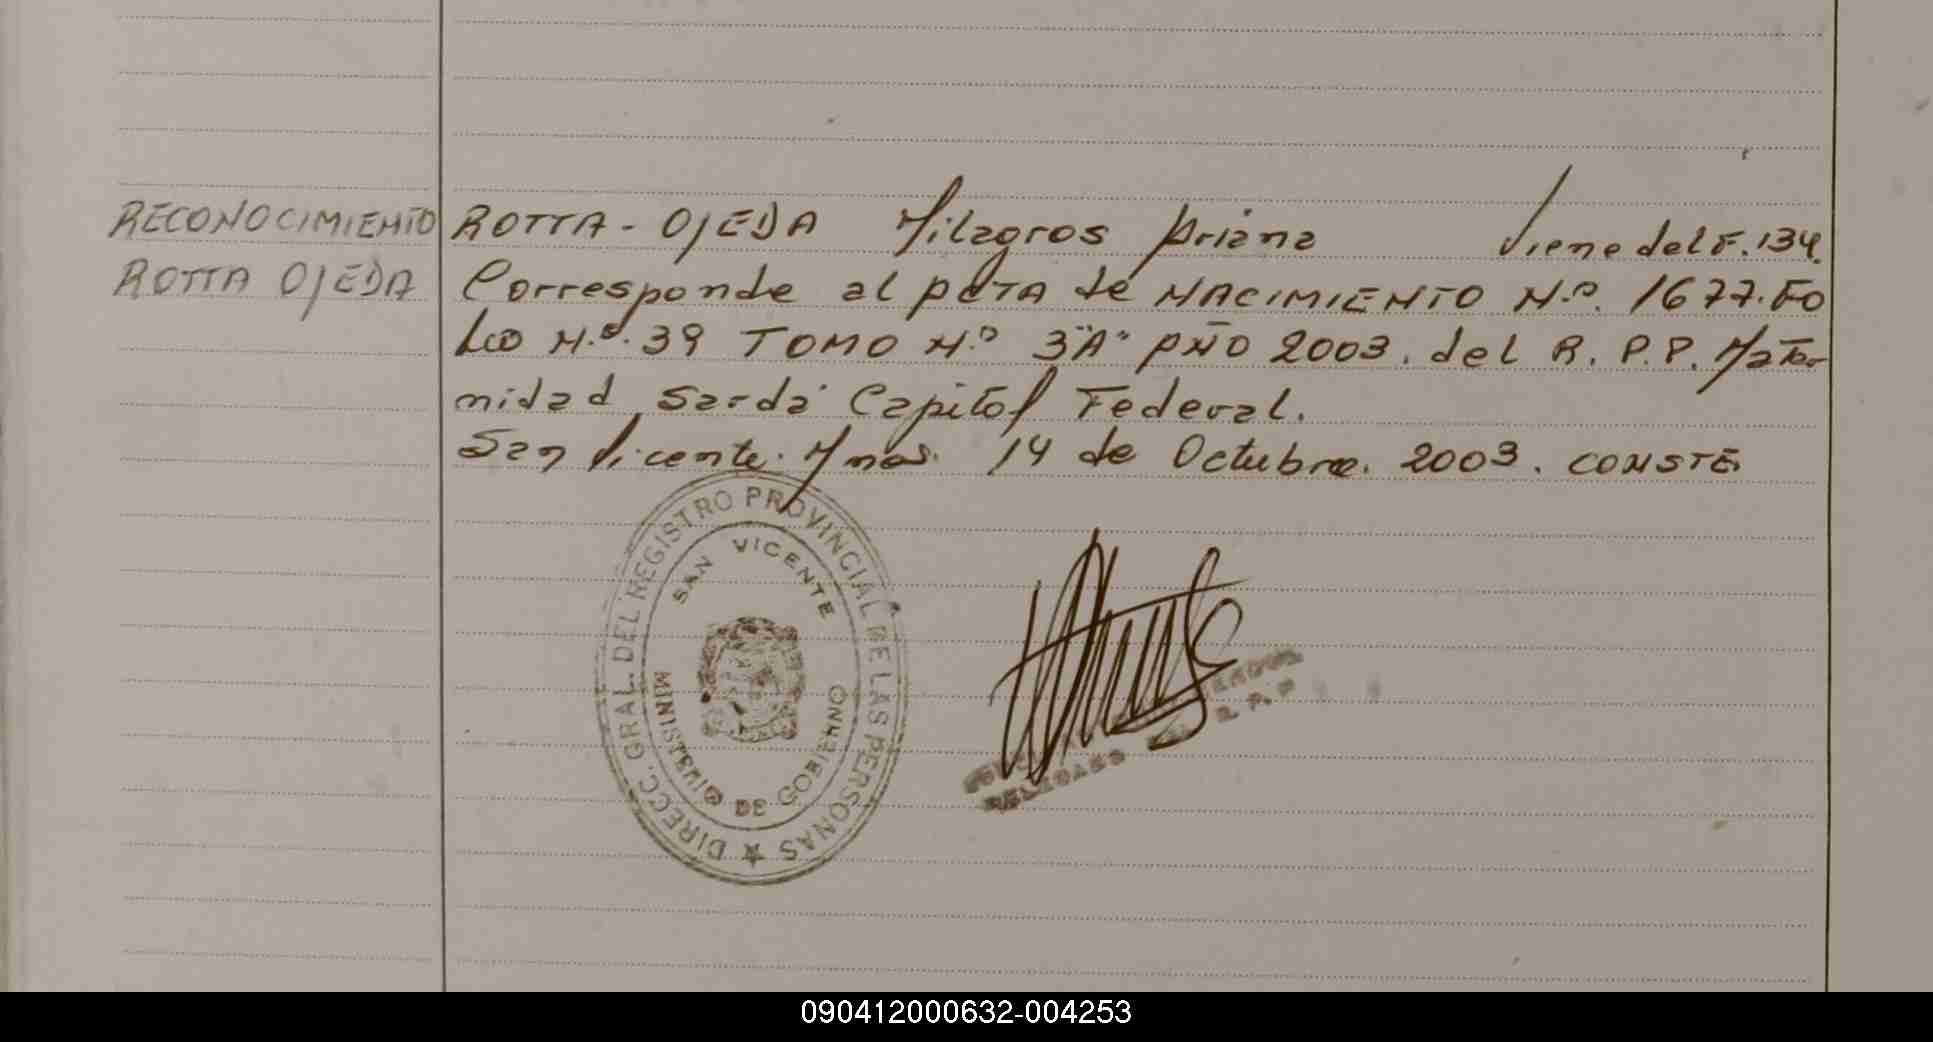 RECONOCIMIENTO
ROTTA OJEDA
ROTTA - OJEDA Milagros Ariana Viene del F. 134.
Corresponde al ACTA de NACIMIENTO N.º 1677. FO
LIO N.º 39 TOMO N.º 3"A" AÑO 2003. del R. P.P. Mater
nidad Sardá Capital Federal.
San Vicente. Mnes. 14 de Octubre. 2003. CONSTE
DIRECC. GRAL. DEL REGISTRO PROVINCIAL DE LAS PERSONAS ★
SAN VICENTE
MINISTERIO DE GOBIERNO
DELEGADO R. P. P
090412000632-004253